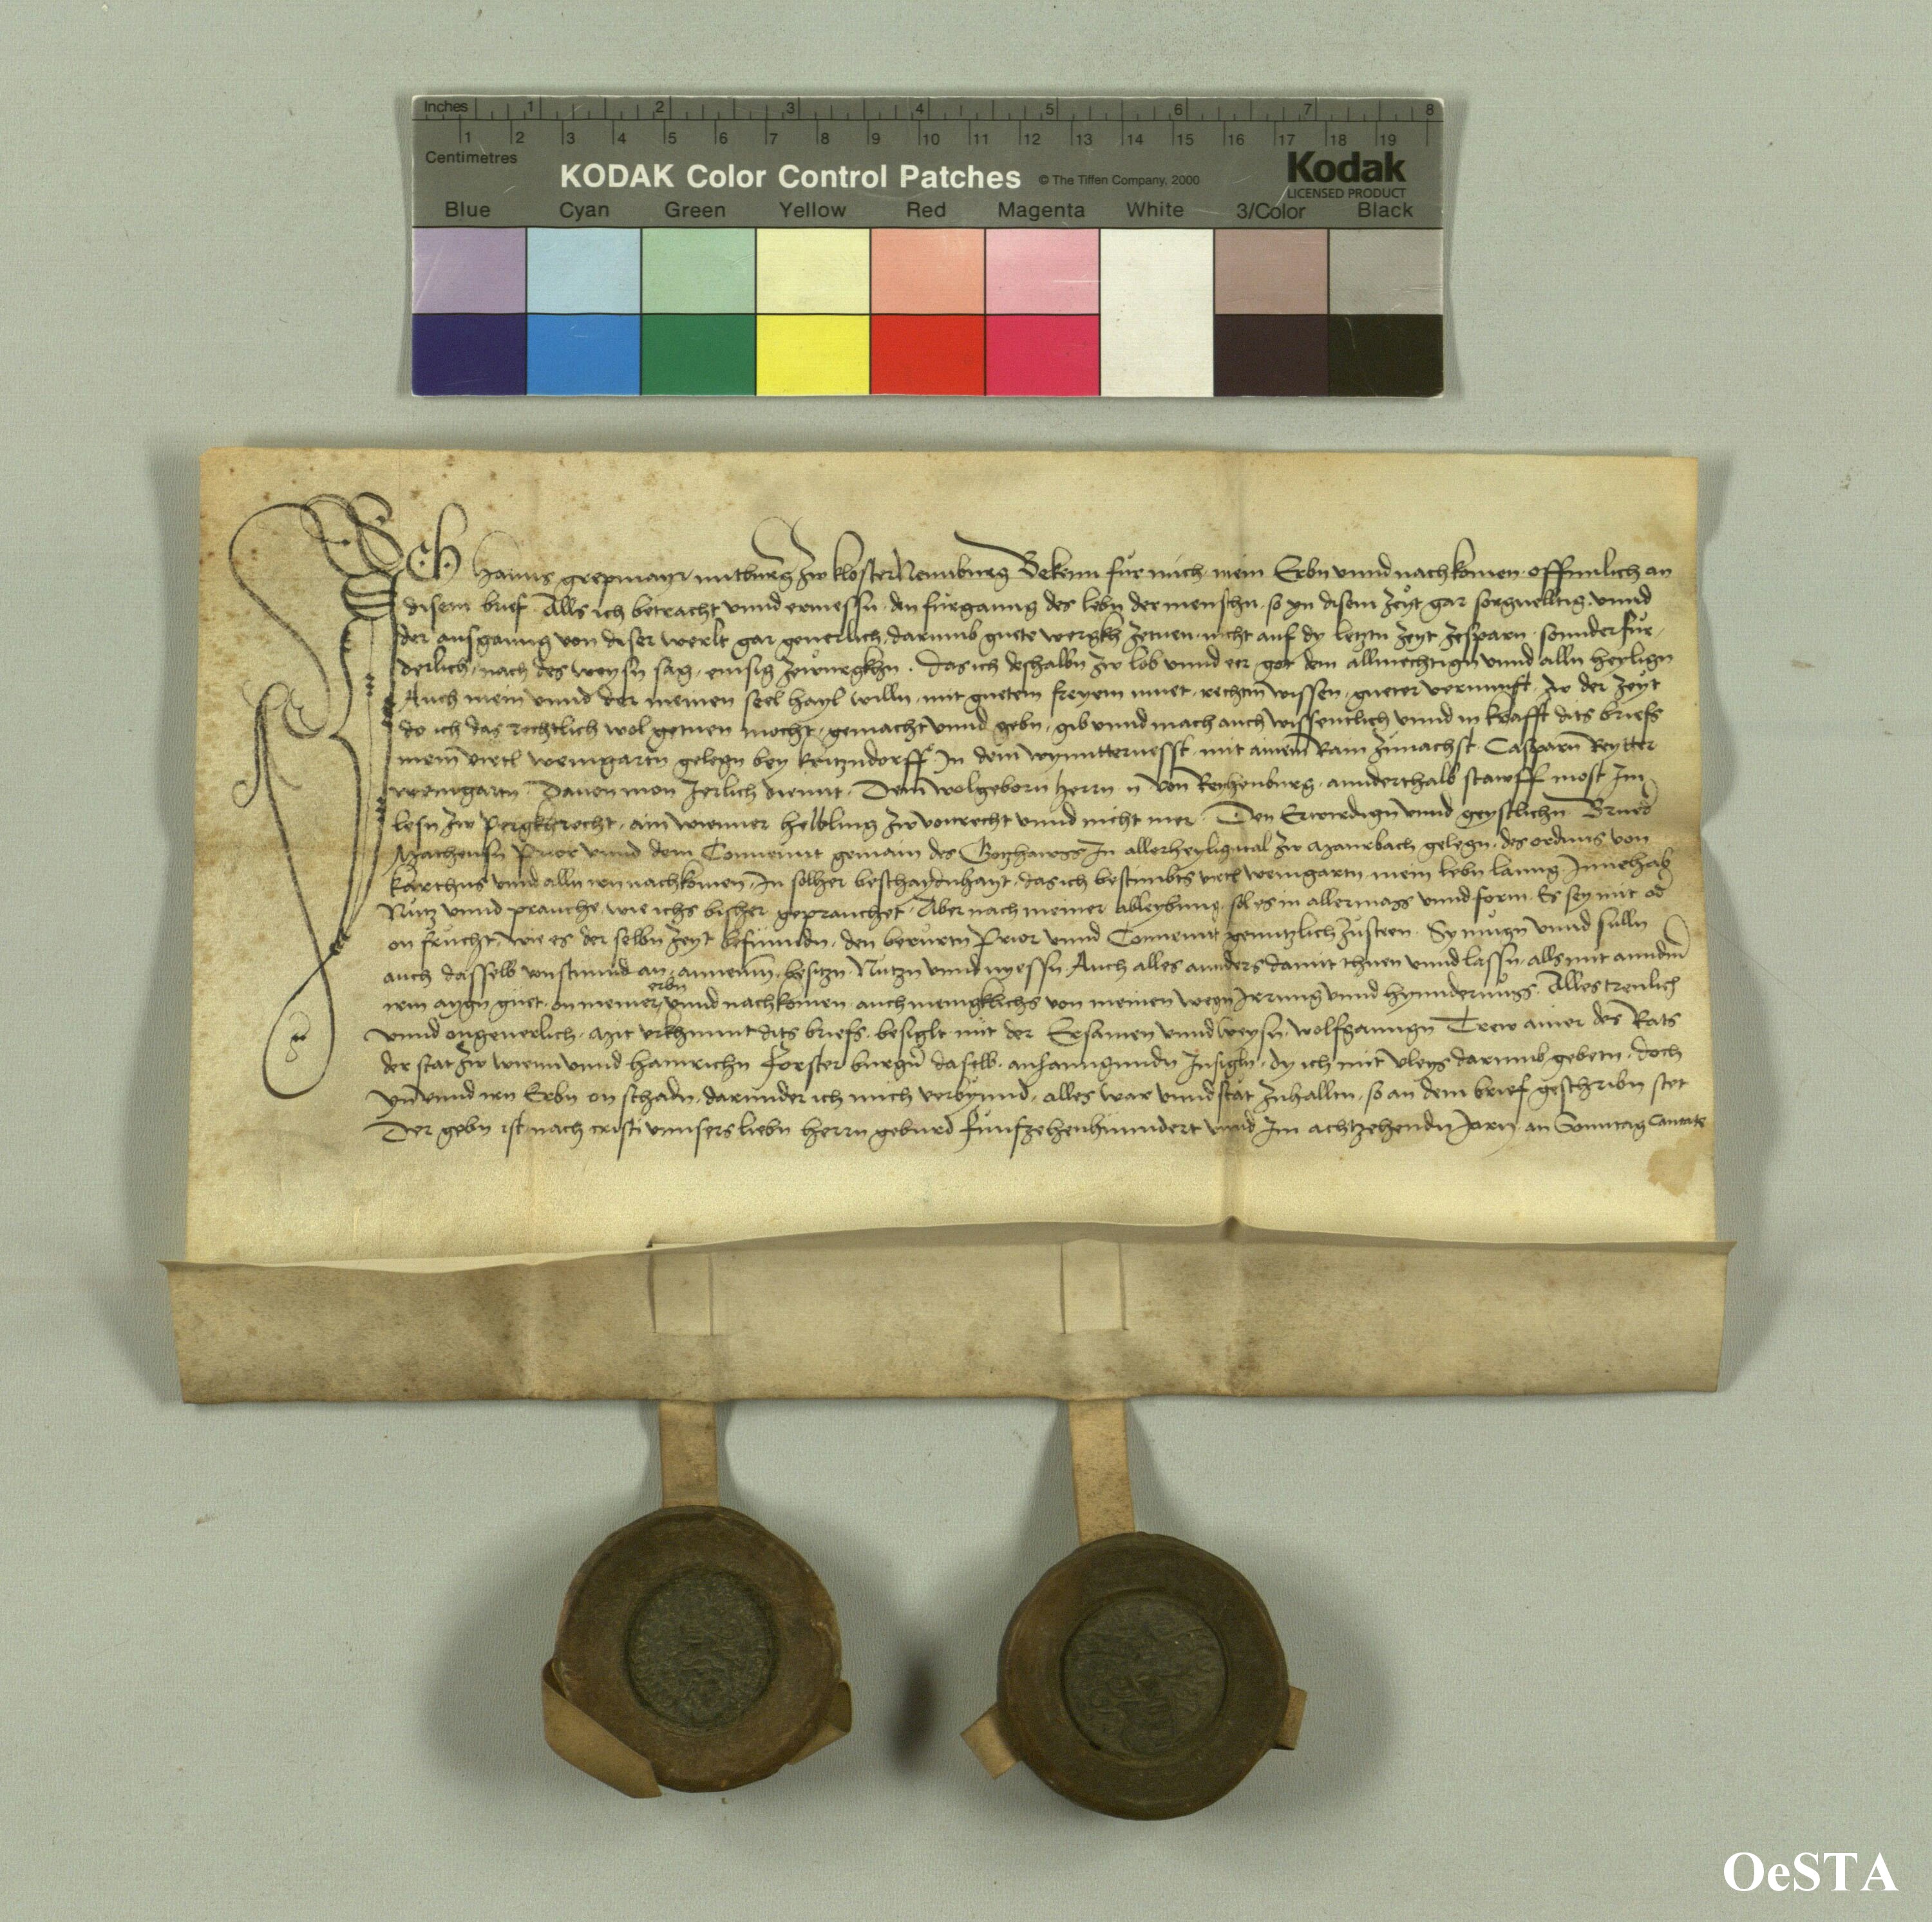 Inches 1 2 3 4 5 6 7 8
1 2 3 4 5 6 7 8 9 10 11 12 13 14 15 16 17 18 19
Centimetres
KODAK Color Control Patches © The Tiffen Company, 2000 Kodak
LICENSED PRODUCT
Blue Cyan Green Yellow Red Magenta White 3/Color Black
Ich Hanns grepmayr mitburg zw klosterNewnburg Bekenn für mich mein Erbn vnnd nachkomen offennlich an
disem brief Alls ich betracht vnnd ermessn den fürganng des lebn der menschn so yn disem zeyt gar sorguelltig vnnd
der ausganng von diser werlt gar geuerlich darumb guete wergkh zetuen nicht auf dy letztn zeyt zesparn sonnder für
derlich nach des weysn sag emsig zewurgkhn Das ich deshalbn zw lob vnnd eer got dem allmechtign vnnd alln heylign
Auch mein vnnd der meinen seel hayl willn mit guetem freyem muet rechtm wissen gueter vernunfft zw der zeyt
do ich das rechtlich wol getuen mocht gemacht vnnd gebn gib vnnd mach auch wissentlich vnnd in krafft dits briefs
mein virtl weingartn gelegn bey kritzndorff In dem mit ainem Rain zunachst Casparn Reytter
weingartn Dauon mon Jerlich diennt Dem wolgeborn herrn n von annderthalb stawff most Im
lesn zw Pergkhrecht ain wienner helbling zw vorrecht vnnd nicht mer Den Erwirdign vnnd geystlichn Brued
Prior vnnd dem Conuennt gemain des Gotzhawss In allerheyligntal zw Maurbach gelegn des ordens von
Karthus vnnd alln irn nachkomen In solher beschaydnhayt das ich bestimbts virtl weingartn mein lebn lanng Innehab
Nutz vnnd prauche wie ichs bisher geprauchet Aber nach meiner ableybung sol es in allermass vnnd form Es sey mit od
on frucht wie es der selbn zeyt befunndn den berurtn Prior vnnd Conuennt genntzlich zusteen Sy mugn vnnd sulln
auch dasselb von stunnd an annemn besitzn Nutzn vnnd nyessn Auch alles annders damit thuen vnnd lassn alls mit anndm
irem aygn guet on meiner erbn vnnd nachkomen auch menigklichs von meinen wegn Irrung vnnd hynndernuss Alles treulich
vnnd ongeuerlich Mit vrkhunnt dits briefs besiglt mit der Ersamen vnnd weysn Wolfganngn Trew ainer des Rats
der stat zw wienn vnnd hainrichn Forster burgn daselb anhanngundn Insigln dy ich mit vleys darumb gebetn doch
yn vnnd irn Erbn on schadn darunder ich mich verbynnd alles war vnnd stat zuhalltn so an dem brief geschribn stet
Der gebn ist nach cristi vnnsers liebn herrn geburd Funfzehenhunndert vnnd Im achtzehendn Jarn an Sonntag Cantate
OeSTA